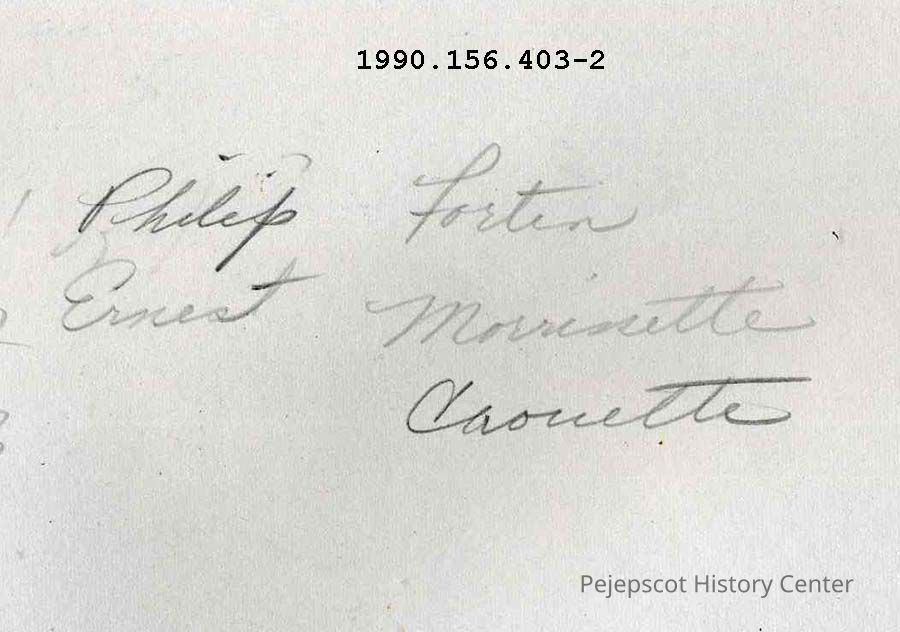 1990.156.403-2
1 Philip Fortin
2 Ernest Morrissette
3 Caouette
Pejepscot History Center